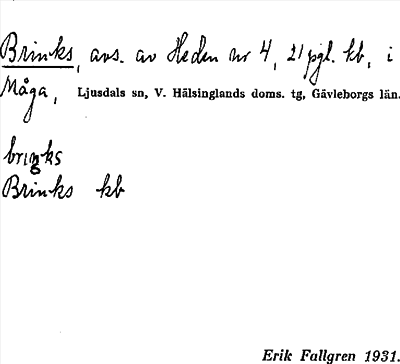 Brinks, avs. av Heden nr 4, 21 pgl. kb, i
Måga, Ljusdals sn, V. Hälsinglands doms. tg, Gävleborgs län.
briŋks
Brinks kb
Erik Fallgren 1931.